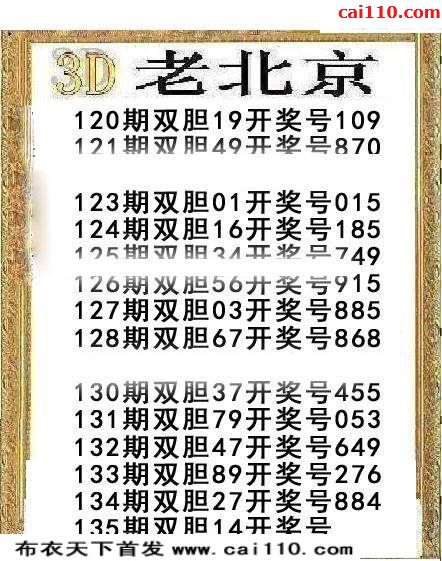 cai110.com
3D 老北京
120期双胆19开奖号109
121期双胆49开奖号870
123期双胆01开奖号015
124期双胆16开奖号185
125期双胆34开奖号749
126期双胆56开奖号915
127期双胆03开奖号885
128期双胆67开奖号868
130期双胆37开奖号455
131期双胆79开奖号053
132期双胆47开奖号649
133期双胆89开奖号276
134期双胆27开奖号884
135期双胆14开奖号
布衣天下首发 www.cai110.com